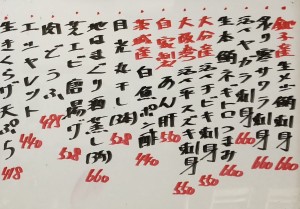 銚子産 生メジ刺身 660
炙り寒サワラ刺身 660
活ヤガラ刺身 660
生本鮪ネギトロつまみ
大分産 活ヘダイ刺身 550
大分産 活マチビキ刺身 550
自家製 あん肝 550
茨城産 白魚ポン酢 440
目光丸干し(3本) 528
地はまぐり酒蒸し(3ヶ) 660
芝エビ唐揚げ 528
肉どうふ 495
エシャレット 440
生きくらげ天ぷら 418